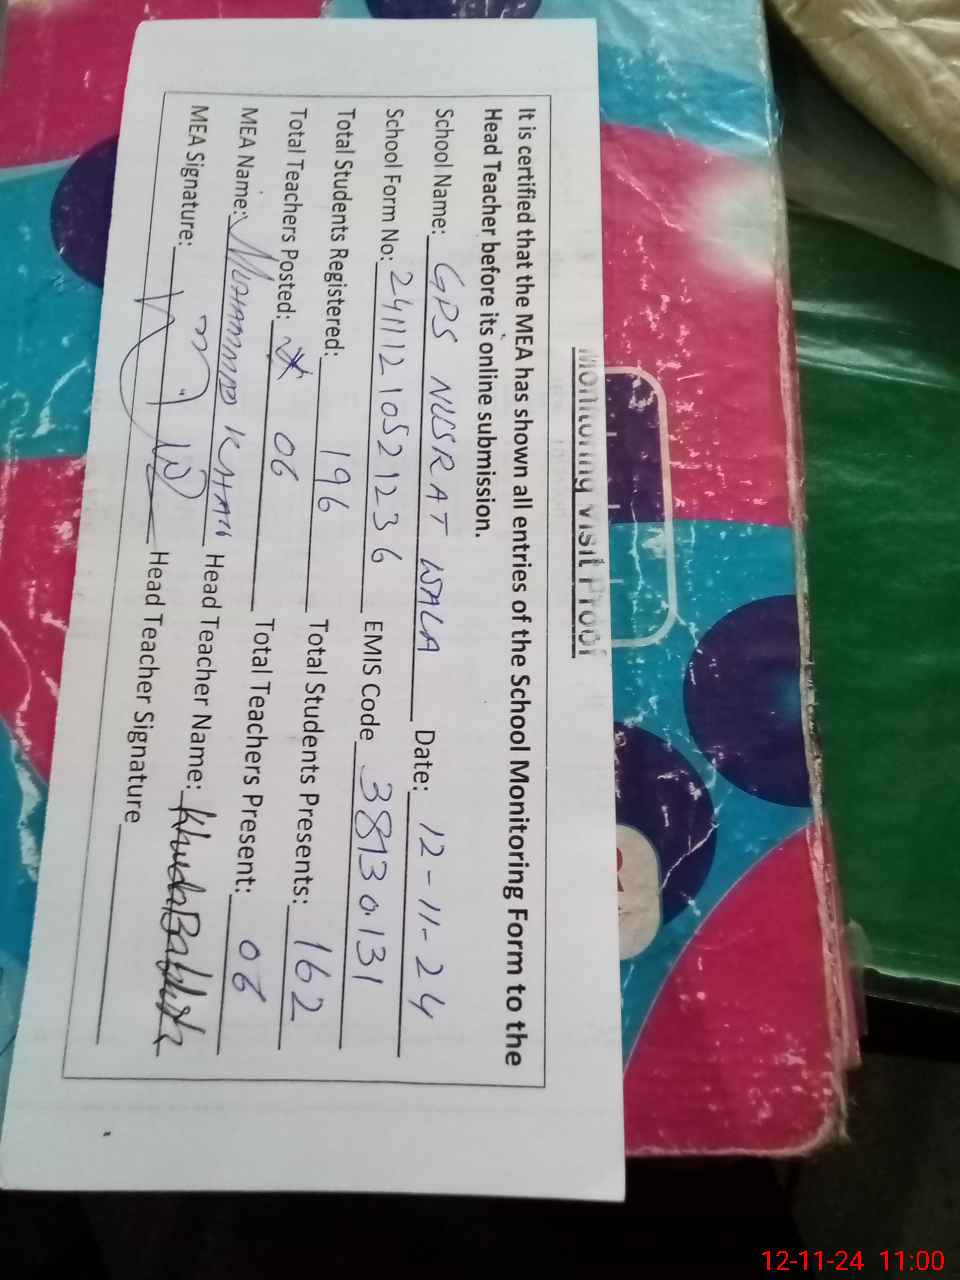 Monitoring Visit Proof
It is certified that the MEA has shown all entries of the School Monitoring Form to the
Head Teacher before its online submission.
School Name: GPS NUSRAT WALA Date: 12-11-24
School Form No: 241112105212336 EMIS Code 38130131
Total Students Registered: 196 Total Students Presents: 162
Total Teachers Posted: 06 Total Teachers Present: 06
MEA Name: MUHAMMAD KHAN Head Teacher Name: Khuda Bakhsh
MEA Signature: Head Teacher Signature
12-11-24 11:00